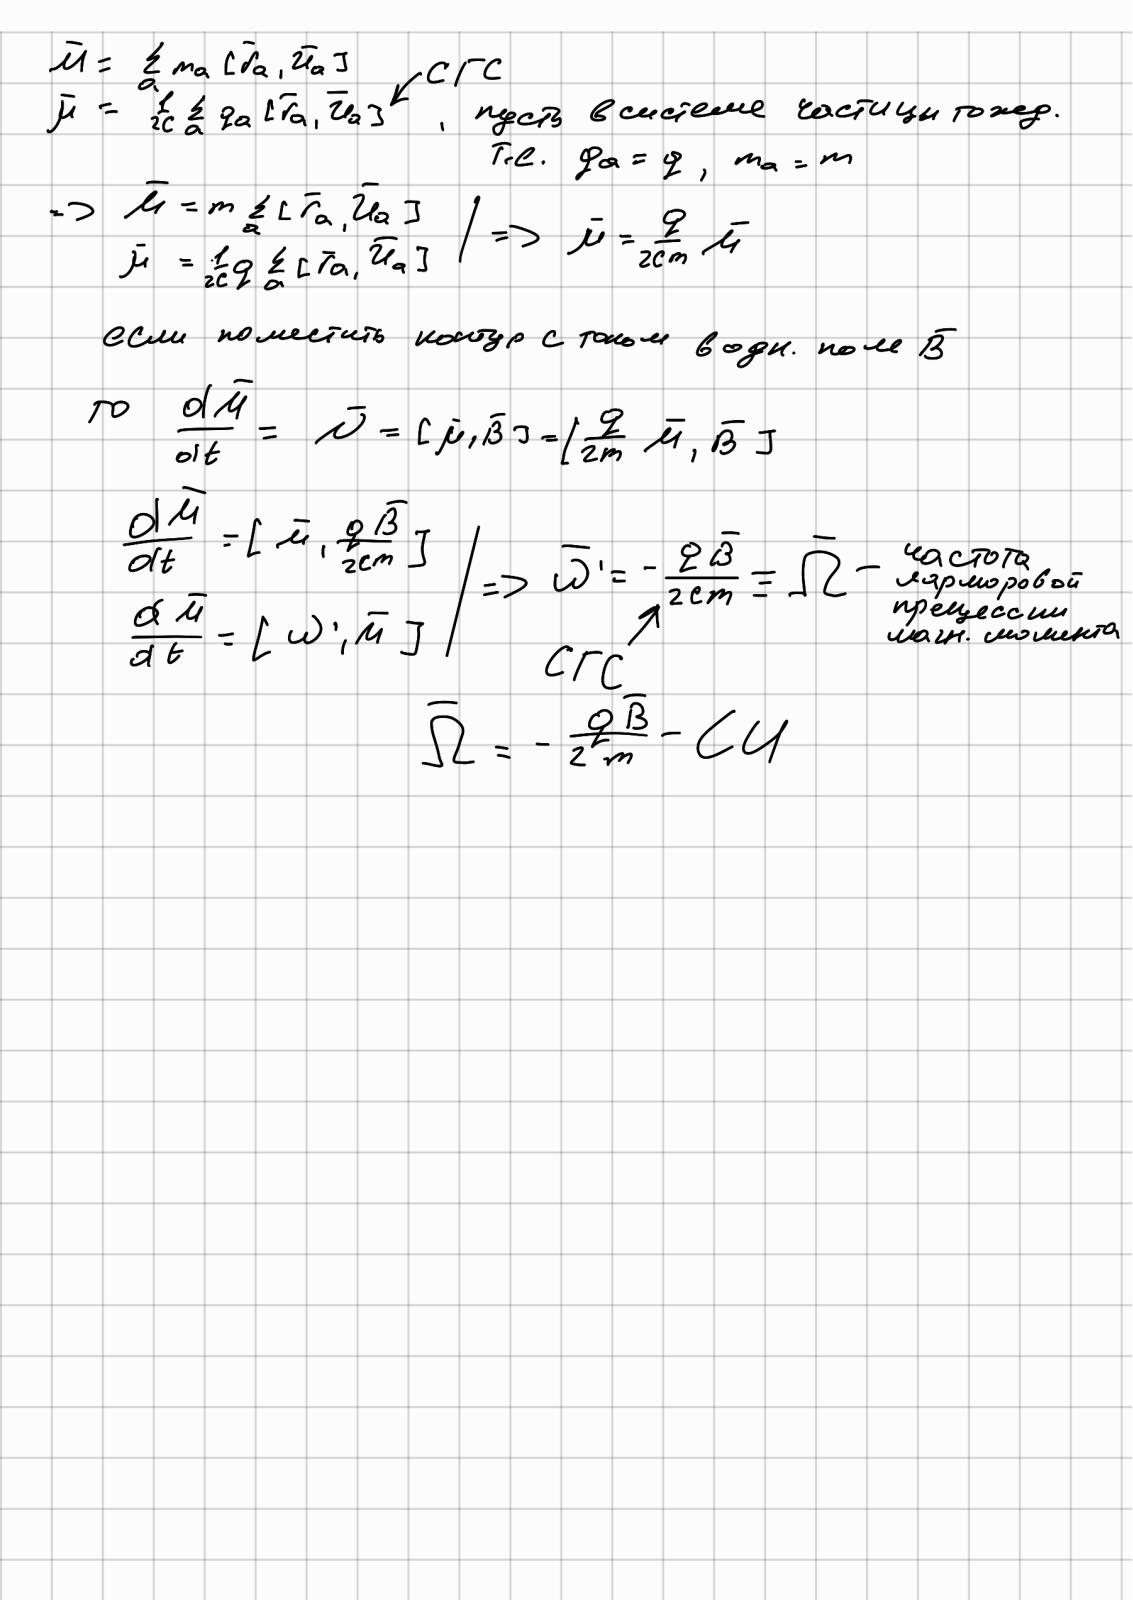 M̄ = Σ_a m_a [r̄_a, v̄_a]
μ̄ = 1/2c Σ_a q_a [r̄_a, v̄_a] ← СГС, пусть в системе частицы тожд.
т.е. q_a = q, m_a = m
=> M̄ = m Σ_a [r̄_a, v̄_a]
μ̄ = 1/2c q Σ_a [r̄_a, v̄_a] | => μ̄ = q/2cm M̄
если поместить контур с током в одн. поле B̄
то dM̄/dt = N̄ = [μ̄, B̄] = [q/2m M̄, B̄]
dM̄/dt = [M̄, qB̄/2cm]
dM̄/dt = [ω', M̄] | => ω̄' = - qB̄/2cm ≡ Ω̄ - частота
лярморовой
прецессии
магн. момента
СГС
Ω̄ = - qB̄/2m - СИ